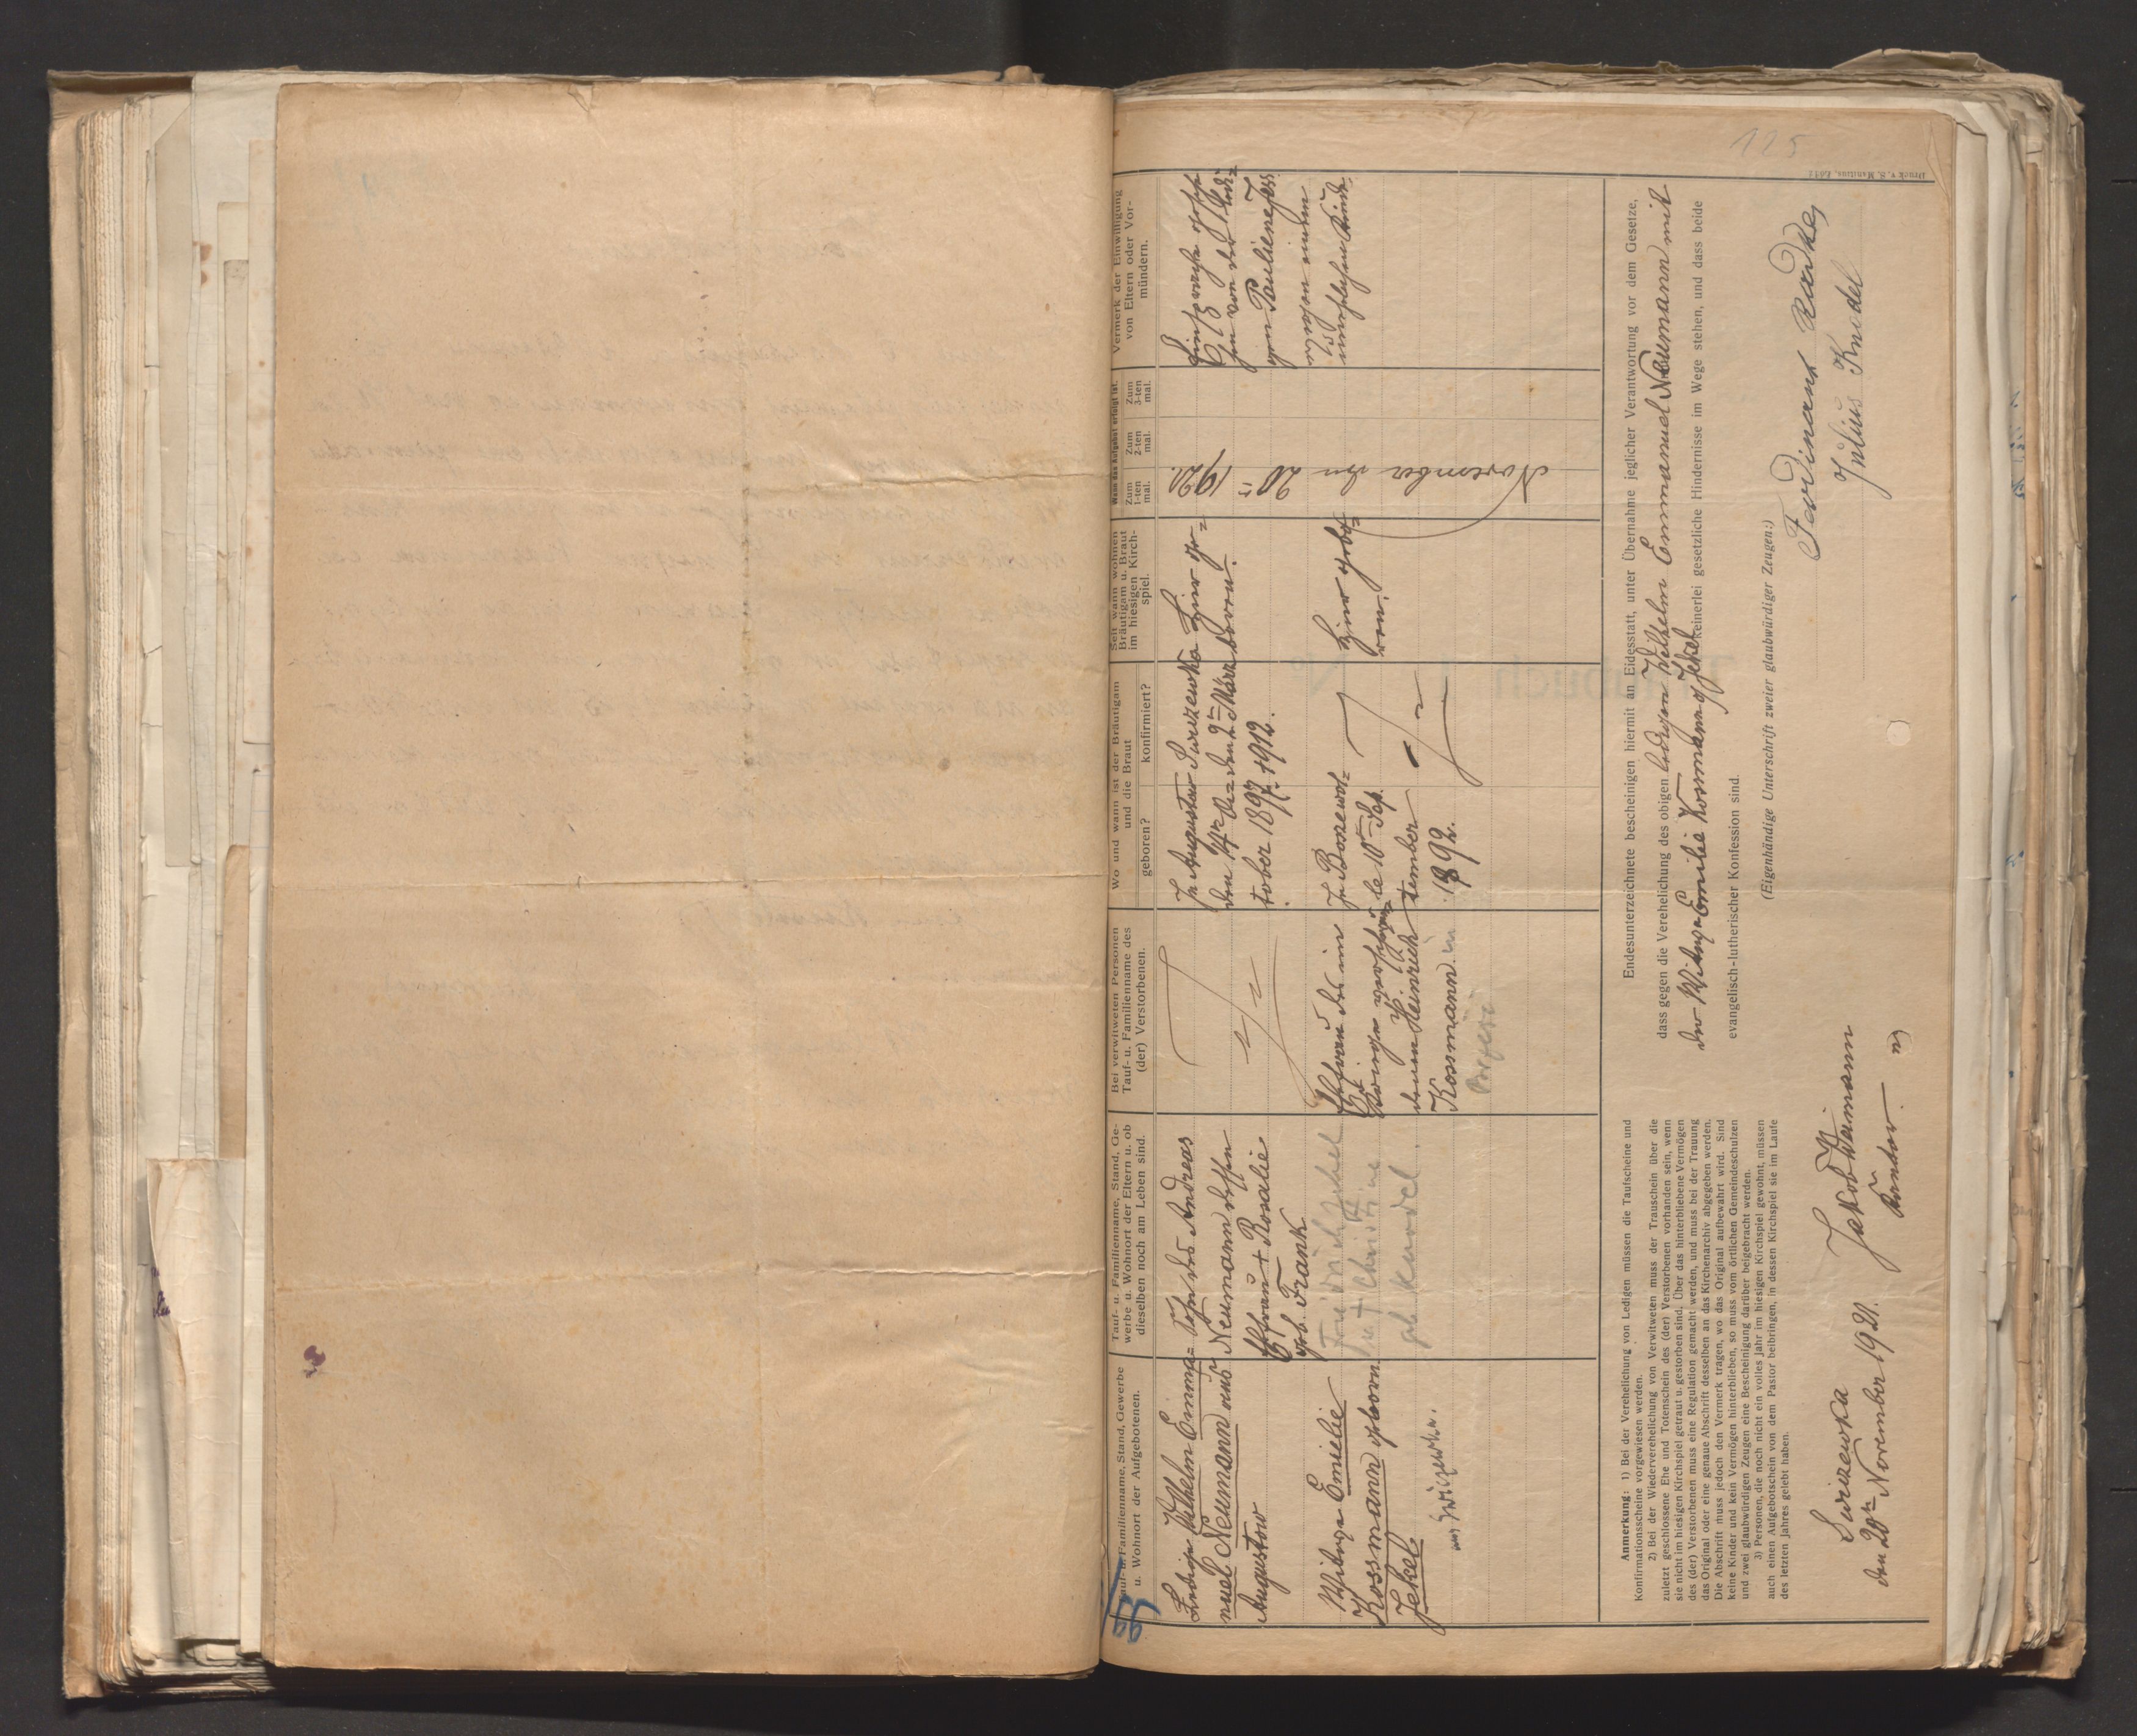 125
Druck v. S. Manitius, Łódź
Tauf- u. Familienname, Stand, Gewerbe
u. Wohnort der Aufgebotenen.
Ledige Wilhelm Emma-
nuel Neumann aus
Augustow
Witwe Emielie
Kossmann geboren
Jekel
aus
Tauf- u. Familienname, Stand, Ge-
werbe u. Wohnort der Eltern u. ob
dieselben noch am Leben sind.
Sohn des Andreas
Neumann dessen
Ehefrau + Rosalie
geb. Frank
Friedrich Jekel
+ Christine
geb Knodel
Bei verwitweten Personen
Tauf- u. Familienname des
(der) Verstorbenen.
Ehefrau des im
Kriege
denen Heinrich
Kossmann in
Wo und wann ist der Bräutigam
und die Braut
geboren?
konfirmiert?
In Augustow
den 14ten Ok-
tober 1897.
Swizewka
den 2ten März
1912.
In
le 10 Sep.
tember
1892.
Seit wann wohnen
Bräutigam u. Braut
im hiesigen Kirch-
spiel.
Hier ge-
boren.
Hier gebo-
ren.
Wann das Aufgebot erfolgt ist.
Zum
1-ten
mal.
Zum
2-ten
mal.
Zum
3-ten
mal.
November den 20ten 1921.
Vermerk der Einwilligung
von Eltern oder Vor-
mündern.
Einsprache
von der ledi-
gen Pauline
wegen einem
unehelichen Kinde
Anmerkung: 1) Bei der Verehelichung von Ledigen müssen die Taufscheine und
Konfirmationsscheine vorgewiesen werden.
2) Bei der Wiederverehelichung von Verwitweten muss der Trauschein über die
zuletzt geschlossene Ehe und Totenschein des (der) Verstorbenen vorhanden sein, wenn
sie nicht im hiesigen Kirchspiel getraut u. gestorben sind. Über das hinterbliebene Vermögen
des (der) Verstorbenen muss eine Regulation gemacht werden, und muss bei der Trauung
das Original oder eine genaue Abschrift desselben an das Kirchenarchiv abgegeben werden.
Die Abschrift muss jedoch den Vermerk tragen, wo das Original aufbewahrt wird. Sind
keine Kinder und kein Vermögen hinterblieben, so muss vom örtlichen Gemeindeschulzen
und zwei glaubwürdigen Zeugen eine Bescheinigung darüber beigebracht werden.
3) Personen, die noch nicht ein volles Jahr im hiesigen Kirchspiel gewohnt, müssen
auch einen Aufgebotschein von dem Pastor beibringen, in dessen Kirchspiel sie im Laufe
des letzten Jahres gelebt haben.
Endesunterzeichnete bescheinigen hiermit an Eidesstatt, unter Übernahme jeglicher Verantwortung vor dem Gesetze,
dass gegen die Verehelichung des obigen ledigen Wilhelm Emmanuel Neumann mit
der Witwe Emilie Kosmann g Jekel keinerlei gesetzliche Hindernisse im Wege stehen, und dass beide
evangelisch-lutherischer Konfession sind.
(Eigenhändige Unterschrift zweier glaubwürdiger Zeugen:)
Ferdinand Radke
Julius Knodel
Swizewka
den 20ten November 1921.
Jakob Weimann
Kantor